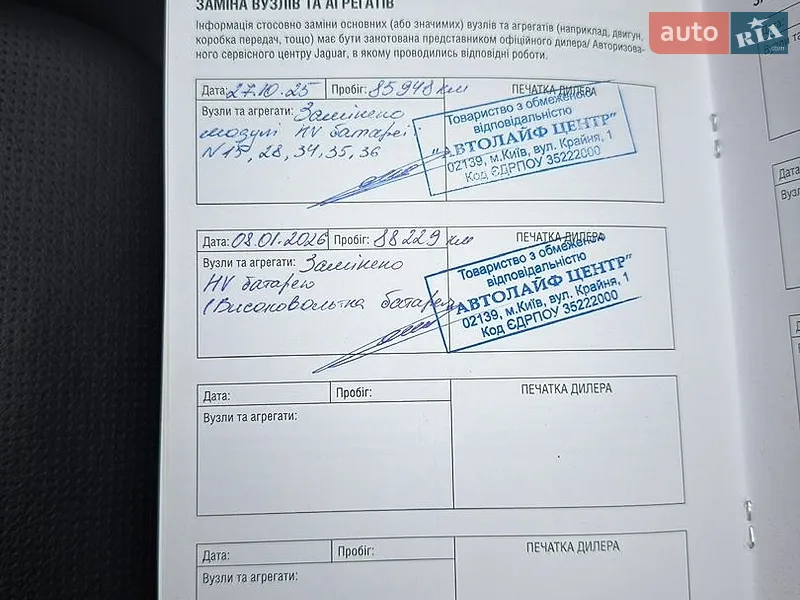 ЗАМІНА ВУЗЛІВ ТА АГРЕГАТІВ
Інформація стосовно заміни основних (або значимих) вузлів та агрегатів (наприклад, двигун,
коробка передач, тощо) має бути занотована представником офіційного дилера/ Авторизова-
ного сервісного центру Jaguar, в якому проводились відповідні роботи.
auto RIA .com
Дата: 27.10.25 Пробіг: 85948 км ПЕЧАТКА ДИЛЕРА
Вузли та агрегати: Замінено
модулі HV батареї:
N 15, 28, 34, 35, 36
Товариство з обмеженою
відповідальністю
"АВТОЛАЙФ ЦЕНТР"
02139, м.Київ, вул. Крайня, 1
Код ЄДРПОУ 35222000
Дата: 08.01.2026 Пробіг: 88229 км ПЕЧАТКА ДИЛЕРА
Вузли та агрегати: Замінено
HV батарею
(Високовольтна батарея)
Товариство з обмеженою
відповідальністю
"АВТОЛАЙФ ЦЕНТР"
02139, м.Київ, вул. Крайня, 1
Код ЄДРПОУ 35222000
Дата: Пробіг: ПЕЧАТКА ДИЛЕРА
Вузли та агрегати:
Дата: Пробіг: ПЕЧАТКА ДИЛЕРА
Вузли та агрегати:
Дата